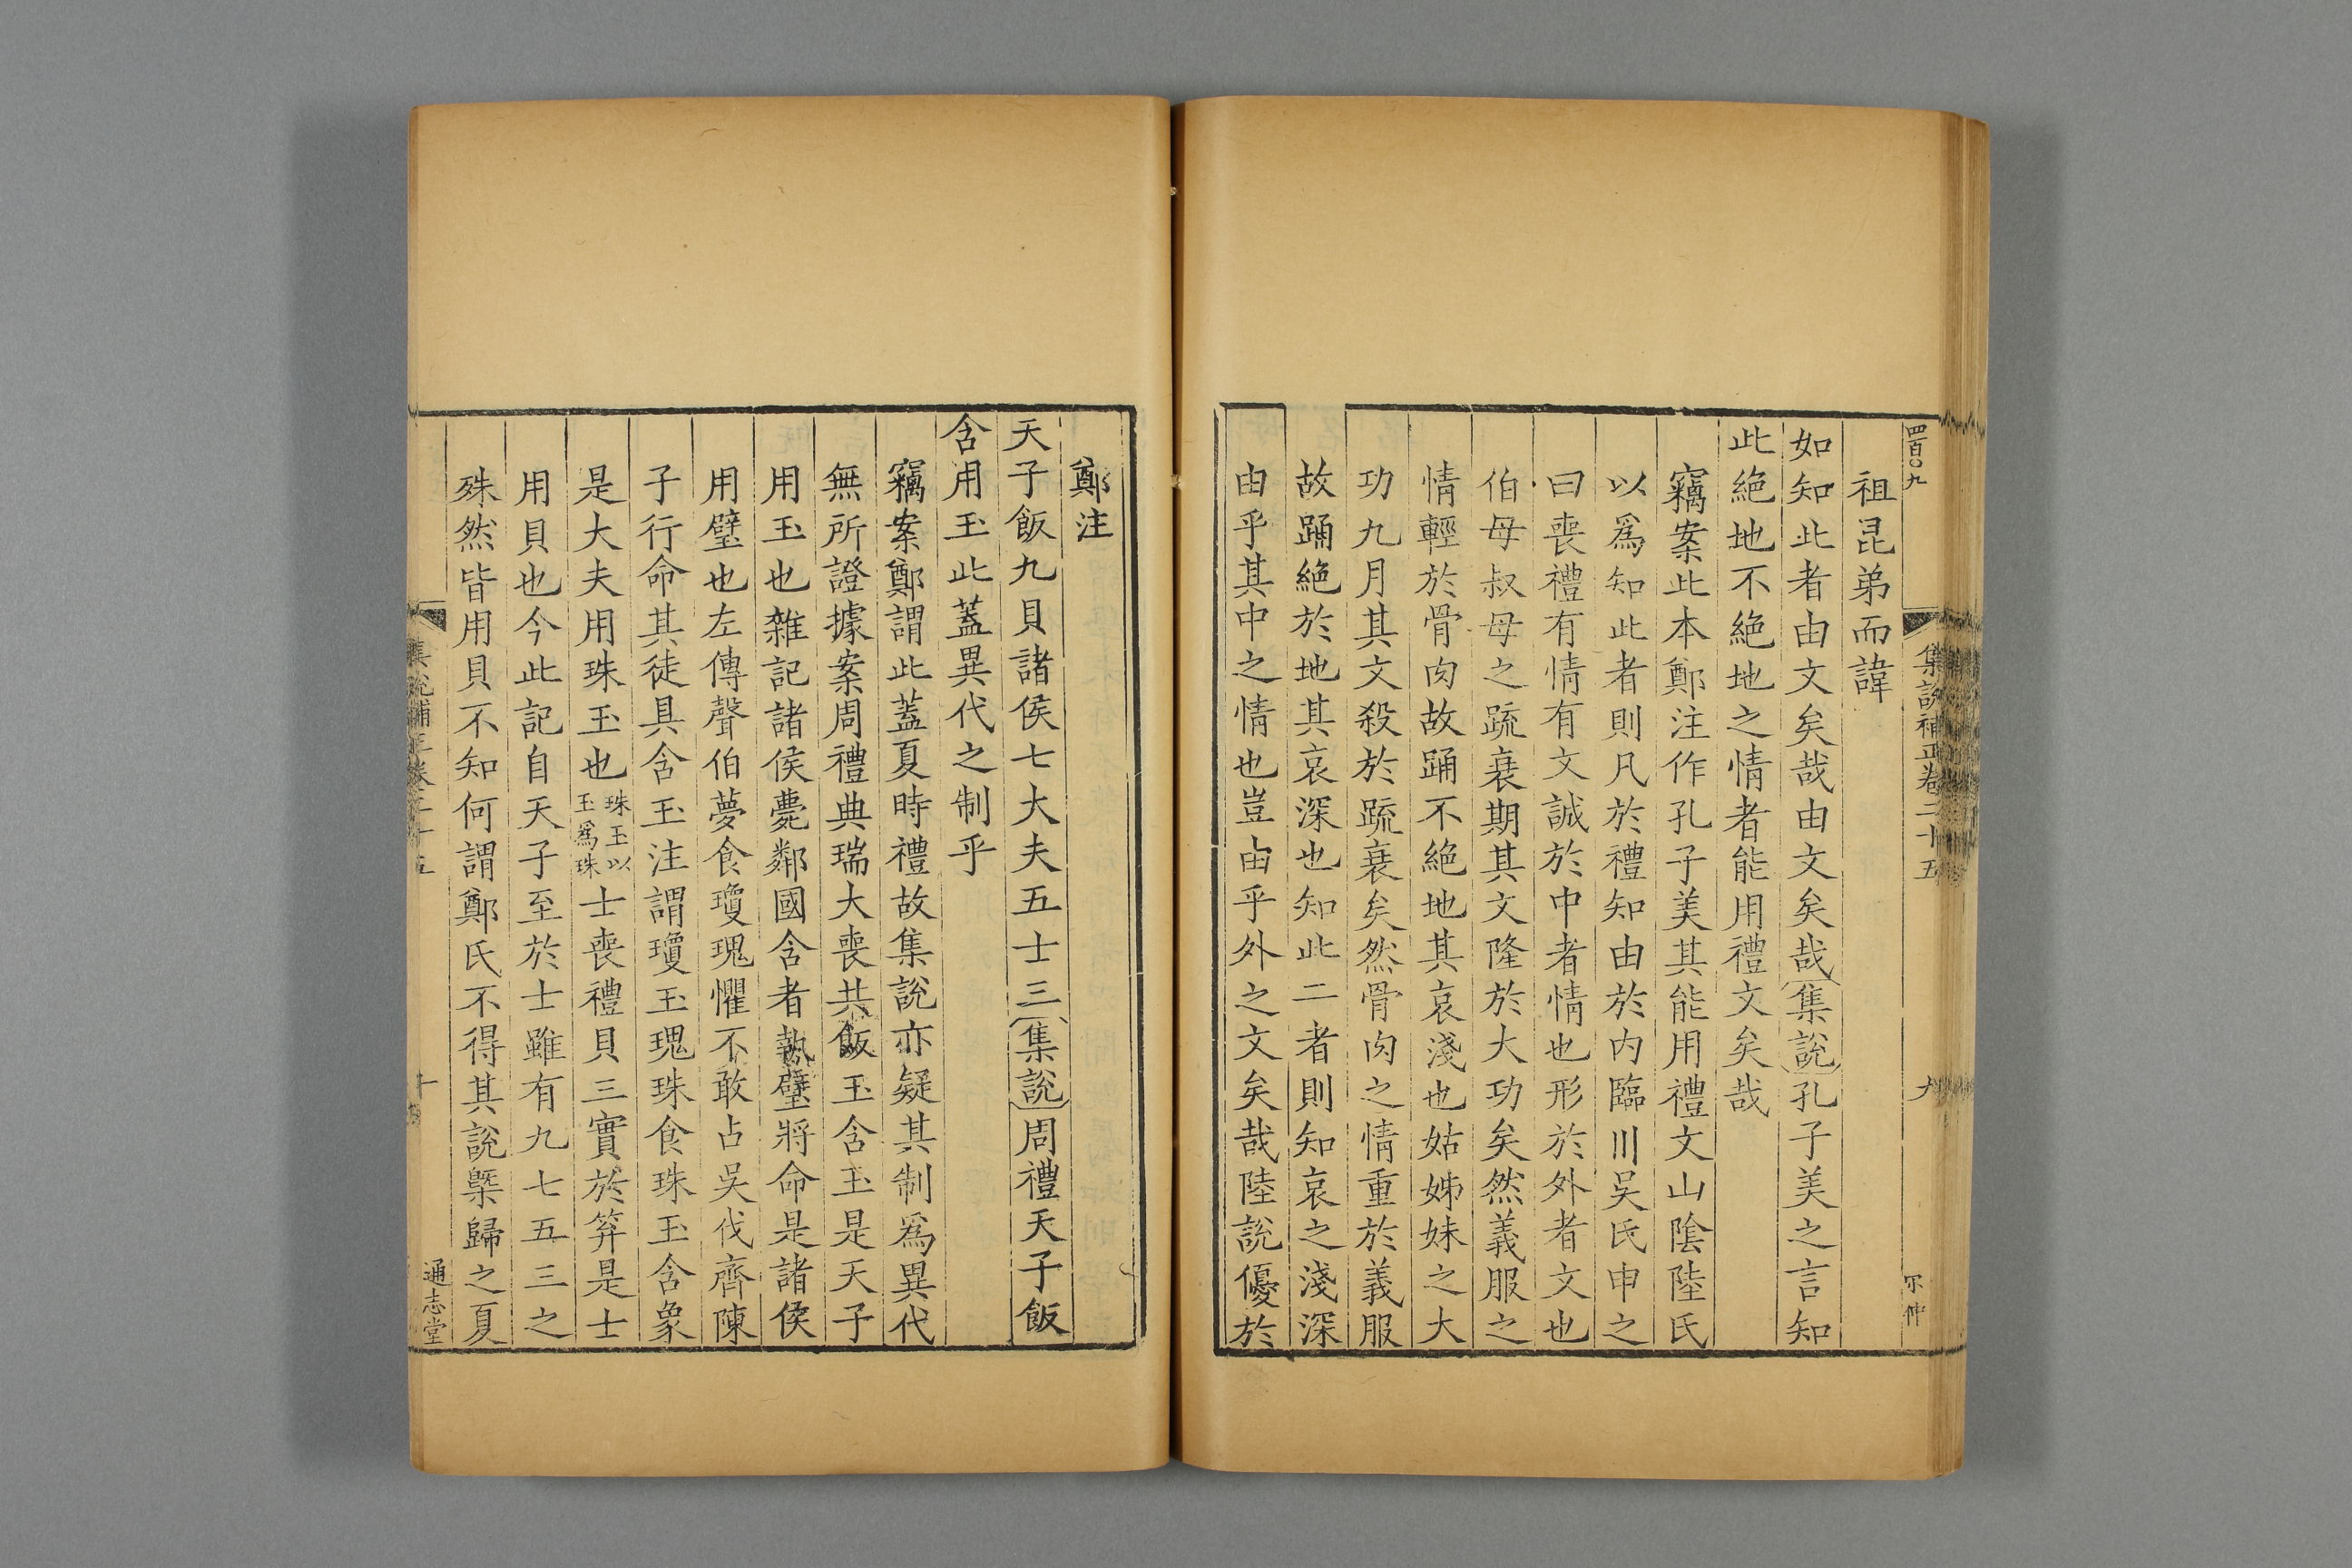 四百〇九
集說補正卷二十五
九
祖昆弟而諱
如知此者由文矣哉由文矣哉集說孔子美之言知
此絕地不絕地之情者能用禮文矣哉
竊案此本鄭注作孔子美其能用禮文山陰陸氏
以爲知此者則凡於禮知由於內臨川吳氏申之
曰喪禮有情有文誠於中者情也形於外者文也
伯母叔母之疏衰期其文隆於大功矣然義服之
情輕於骨肉故踊不絕地其哀淺也姑姊妹之大
功九月其文殺於疏衰矣然骨肉之情重於義服
故踊絕於地其哀深也知此二者則知哀之淺深
由乎其中之情也豈由乎外之文矣哉陸說優於
鄭注
天子飯九貝諸侯七大夫五士三集說周禮天子飯
含用玉此蓋異代之制乎
竊案鄭謂此蓋夏時禮故集說亦疑其制爲異代
無所證據案周禮典瑞大喪共飯玉含玉是天子
用玉也雜記諸侯薨鄰國含者執璧將命是諸侯
用璧也左傳聲伯夢食瓊瑰懼不敢占吳伐齊陳
子行命其徒具含玉注謂瓊玉瑰珠食珠玉含象
是大夫用珠玉也珠玉以玉爲珠士喪禮貝三實於笲是士
用貝也今此記自天子至於士雖有九七五三之
殊然皆用貝不知何謂鄭氏不得其說槩歸之夏
集說補正卷二十五
十
通志堂